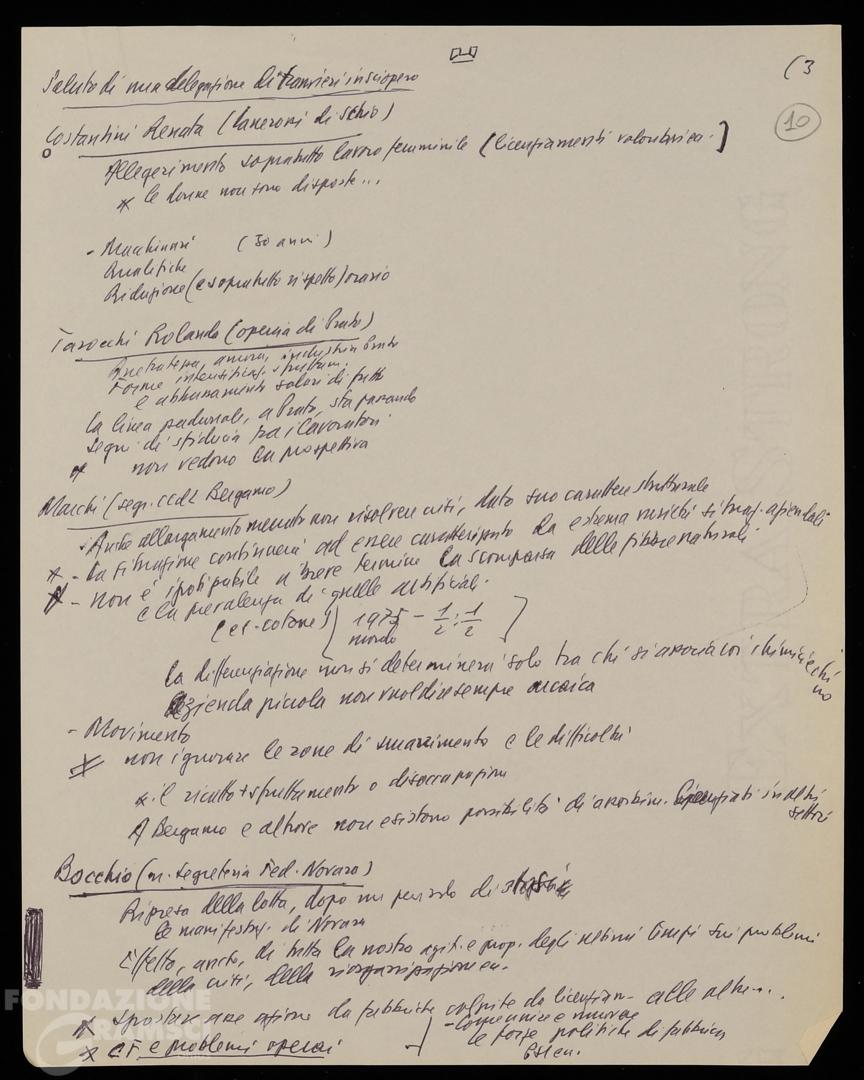 (3
10
Saluto di una delegazione di tranvieri in sciopero
Costantini Renata (Lanerossi di Schio)
Allegerimento sopratutto lavoro femminile (licenziamenti volontari ecc.)
* le donne non sono disposte...
- Macchinari (50 anni)
Qualifiche
Riduzione (e sopratutto rispetto) orario
Tarocchi Rolando (operaia di Prato)
Arretratezza, ancora, industria Prato
Forme intensificaz. sfruttam.
e abbassamento salari di fatto
La linea padronale, a Prato, sta
segni di sfiducia tra i lavoratori
* non vedono la prospettiva
Marchi (segr. CCdL Bergamo)
- Anche allargamento mercato non risolve crisi, dato suo carattere strutturale
* - La situazione continuerà ad essere caratterizzata da estrema varietà situaz. aziendali
* - non è ipotizzabile a breve termine la scomparsa delle fibre naturali
e la prevalenza di quelle artificiali.
(es. cotone) 1975 - 1/2 : 1/2
mondo
La differenziazione non si determinerà solo tra chi si associa coi chimici e chi
no
Azienda piccola non vuol dire sempre arcaica
- Movimento
* non ignorare le zone di smarrimento e le difficoltà
* il ricatto + sfruttamento o disoccupazione
A Bergamo e altrove non esistono possibilità di assorbim. licenziati in altri
settori
Bocchio (m. segreteria Fed. Novara)
Ripresa della lotta, dopo un periodo di stasi
Le manifestaz. di Novara
Effetto, anche, di tutta la nostra agit. e prop. degli ultimi tempi sui problemi
della crisi, della riorganizzazione ecc.
* Spostare asse azione da fabbriche colpite da licenziam. alle altre...
* CF e problemi operai
- Conoscere e muovere
le forze politiche di fabbrica
FONDAZIONE
GRAMSCI